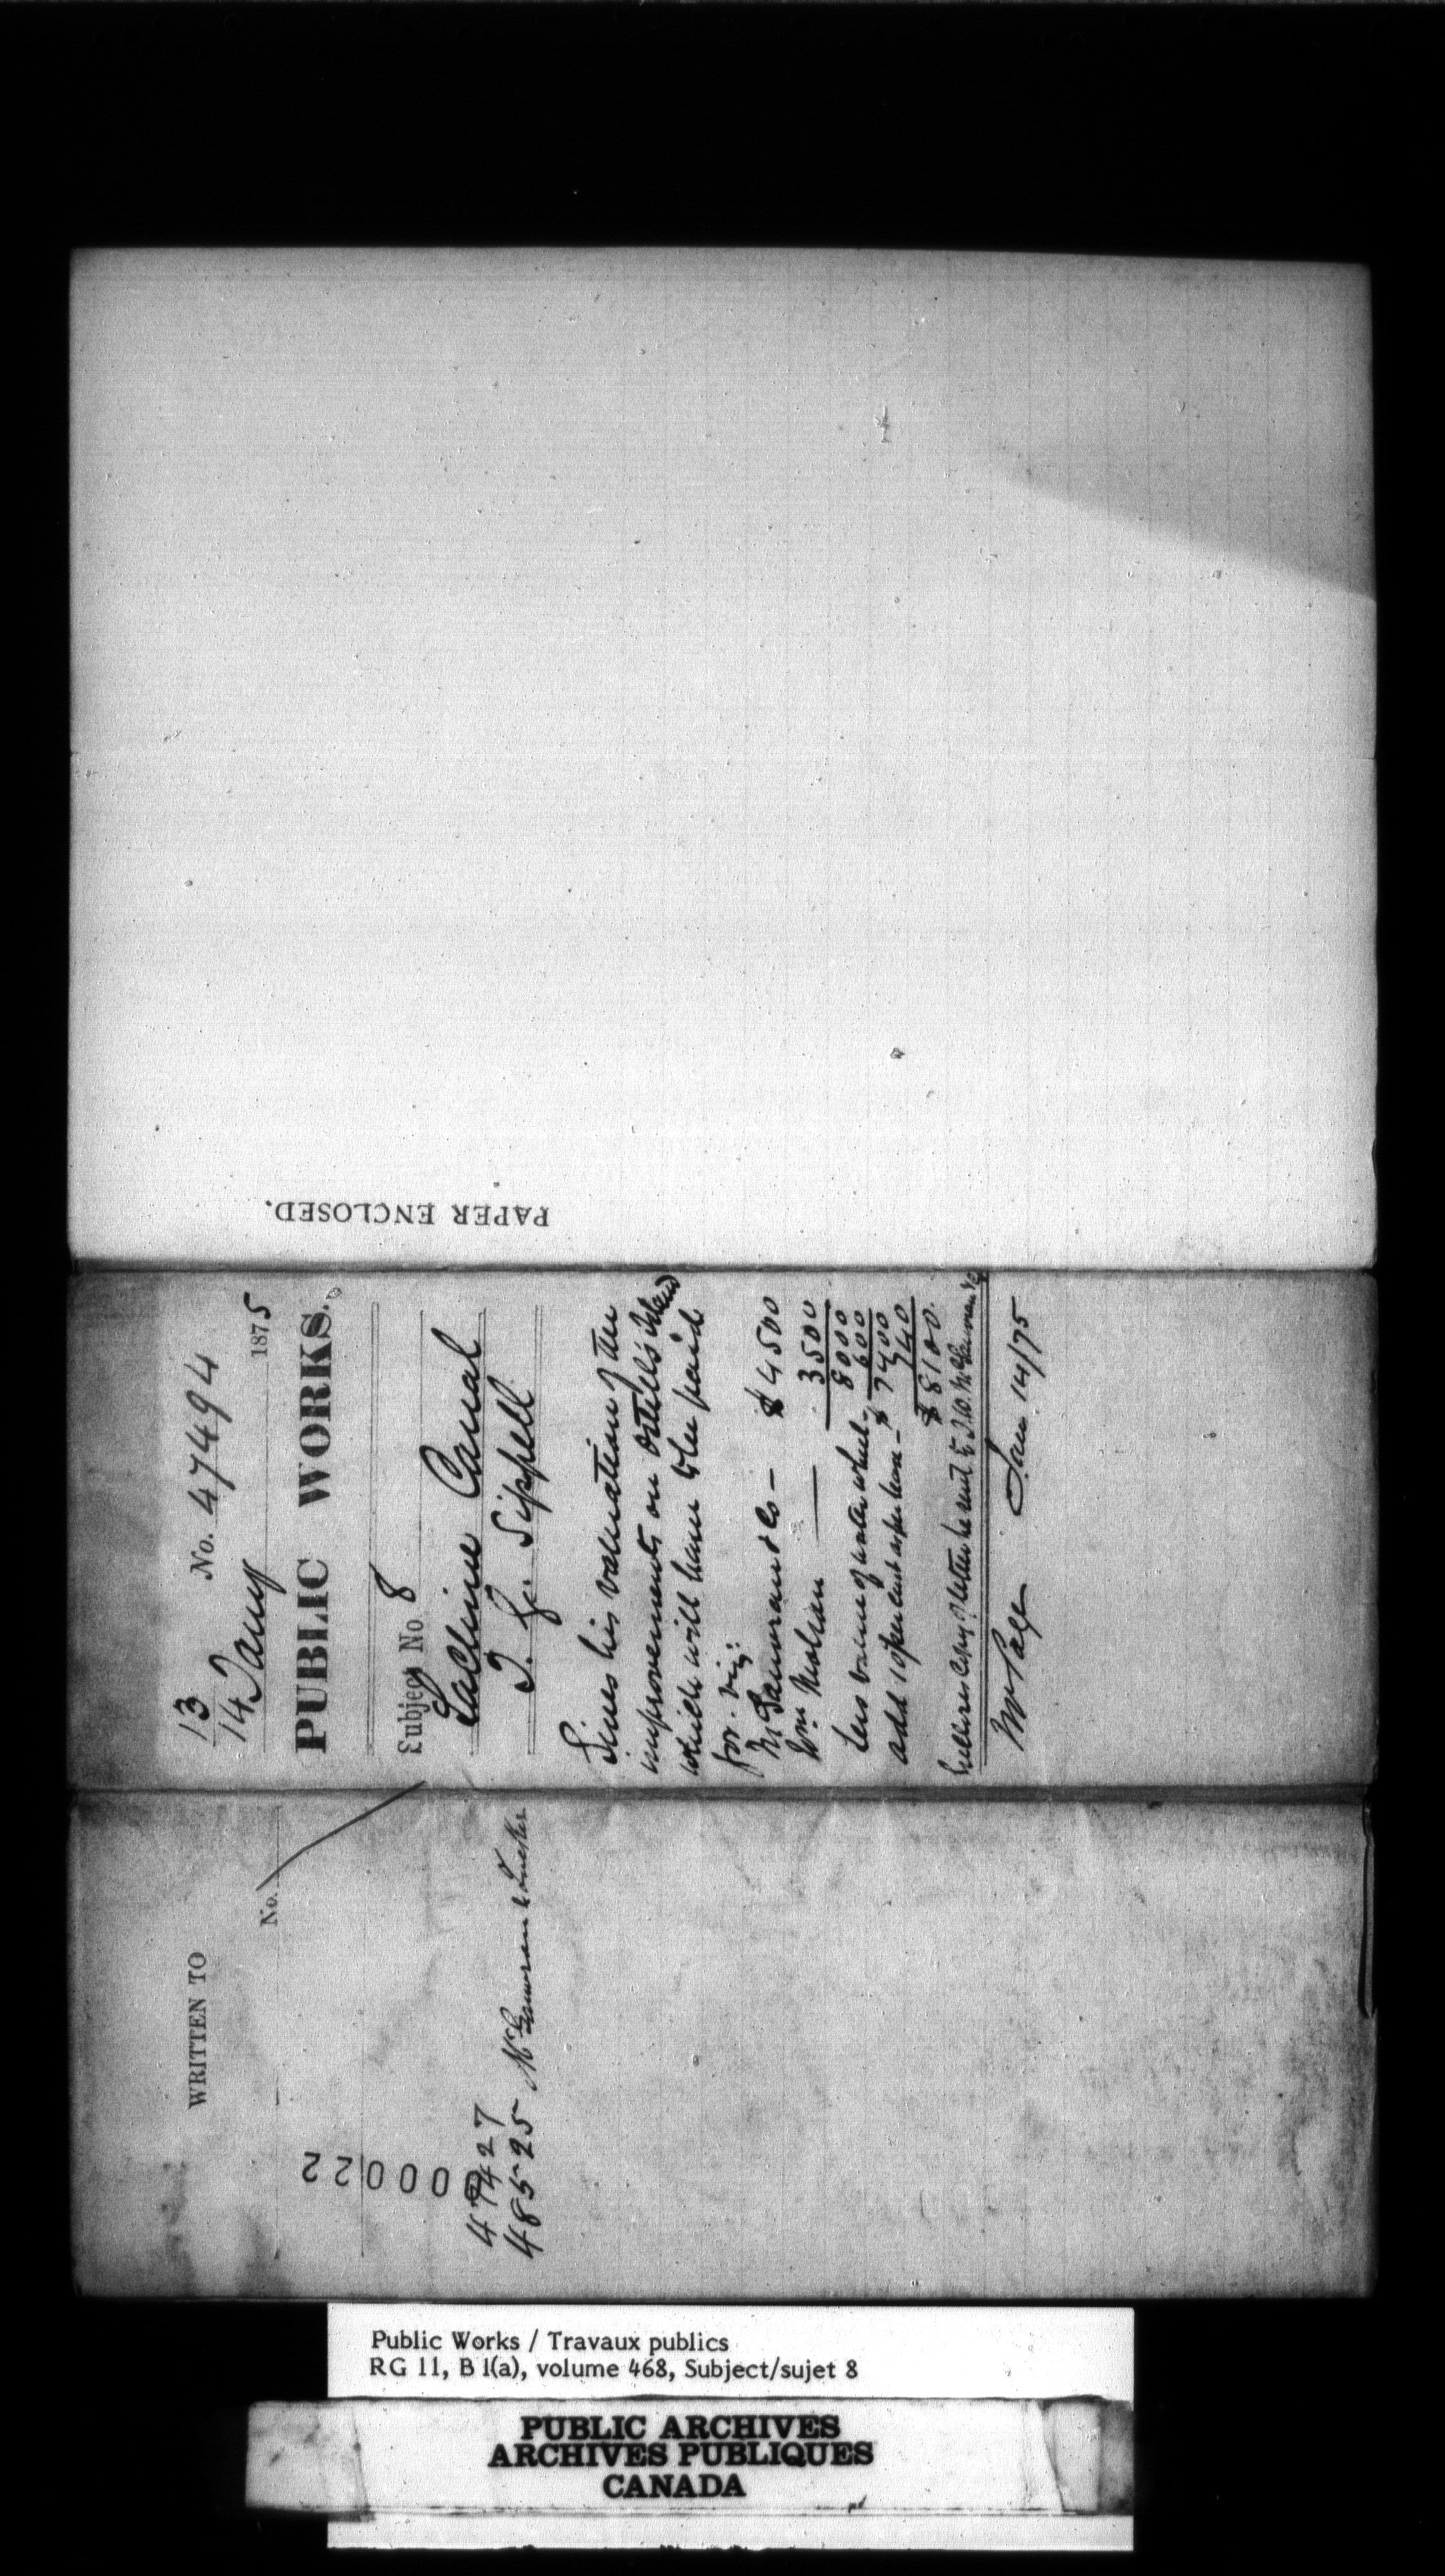 PAPER ENCLOSED.
No. 47494
13
14 Jany 1875
PUBLIC WORKS.
Subject No 8
Lachine Canal
J. G. Sippell
Gives his valuation of the
improvements on Ostell's Island
which will have to be paid
for. viz:
McGauvran & Co — $4500
Wm McLean — 3500
8000
Less value of water wheel — 600
$7400
add 10 per cent as per lease — 740
$8100.
copy of letter to be sent to J. W.
Mr Page Jan. 14/75
WRITTEN TO
No.
00022
47427
48525 McGauvran & Tucker
Public Works / Travaux publics
RG 11, B 1(a), volume 468, Subject/sujet 8
PUBLIC ARCHIVES
ARCHIVES PUBLIQUES
CANADA